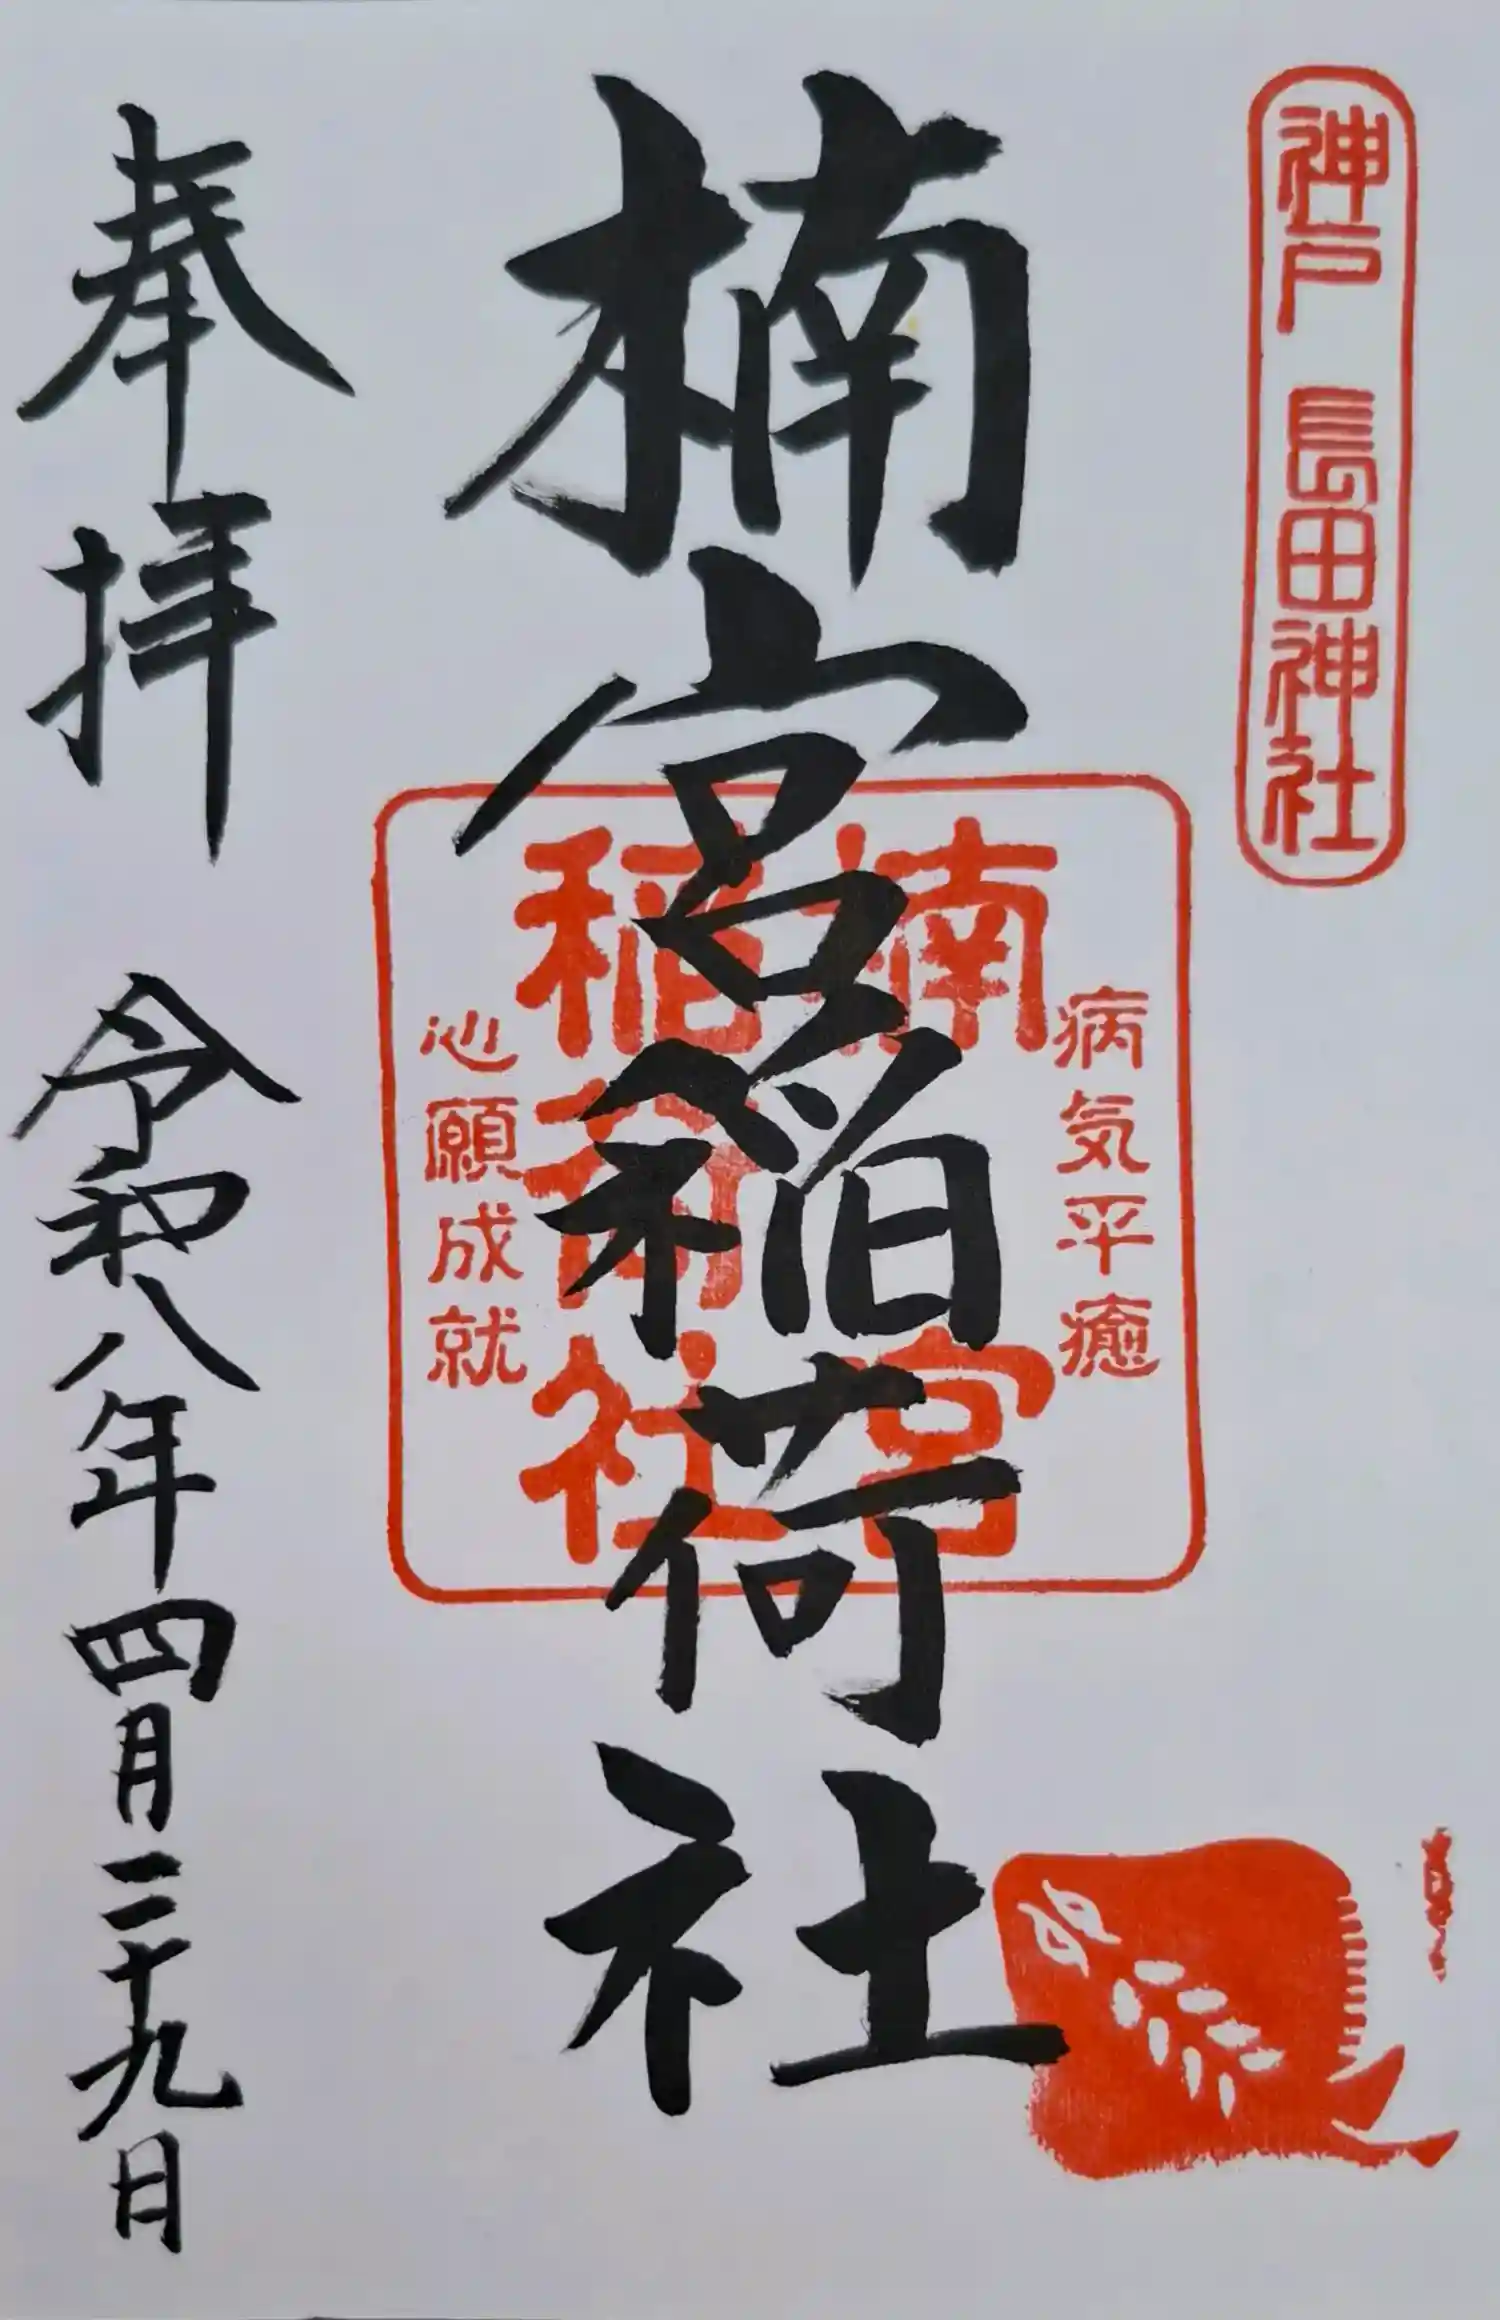 神戸 長田神社
病気平癒
楠宮
稲荷社
心願成就
楠宮稲荷社
奉拝 令和八年四月二十九日